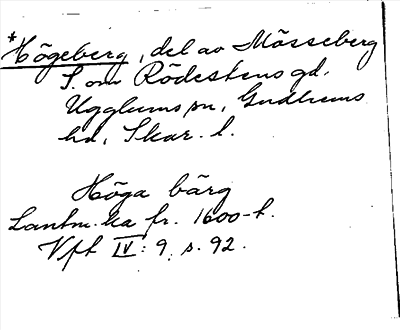 *Högeberg, del av Mösseberg
S. om Rödestens gd,
Ugglums sn, Gudhems
hd, Skar. l.
Höga bärg
Lantm.ka fr. 1600-t.
Vft IV: 9, s. 92.